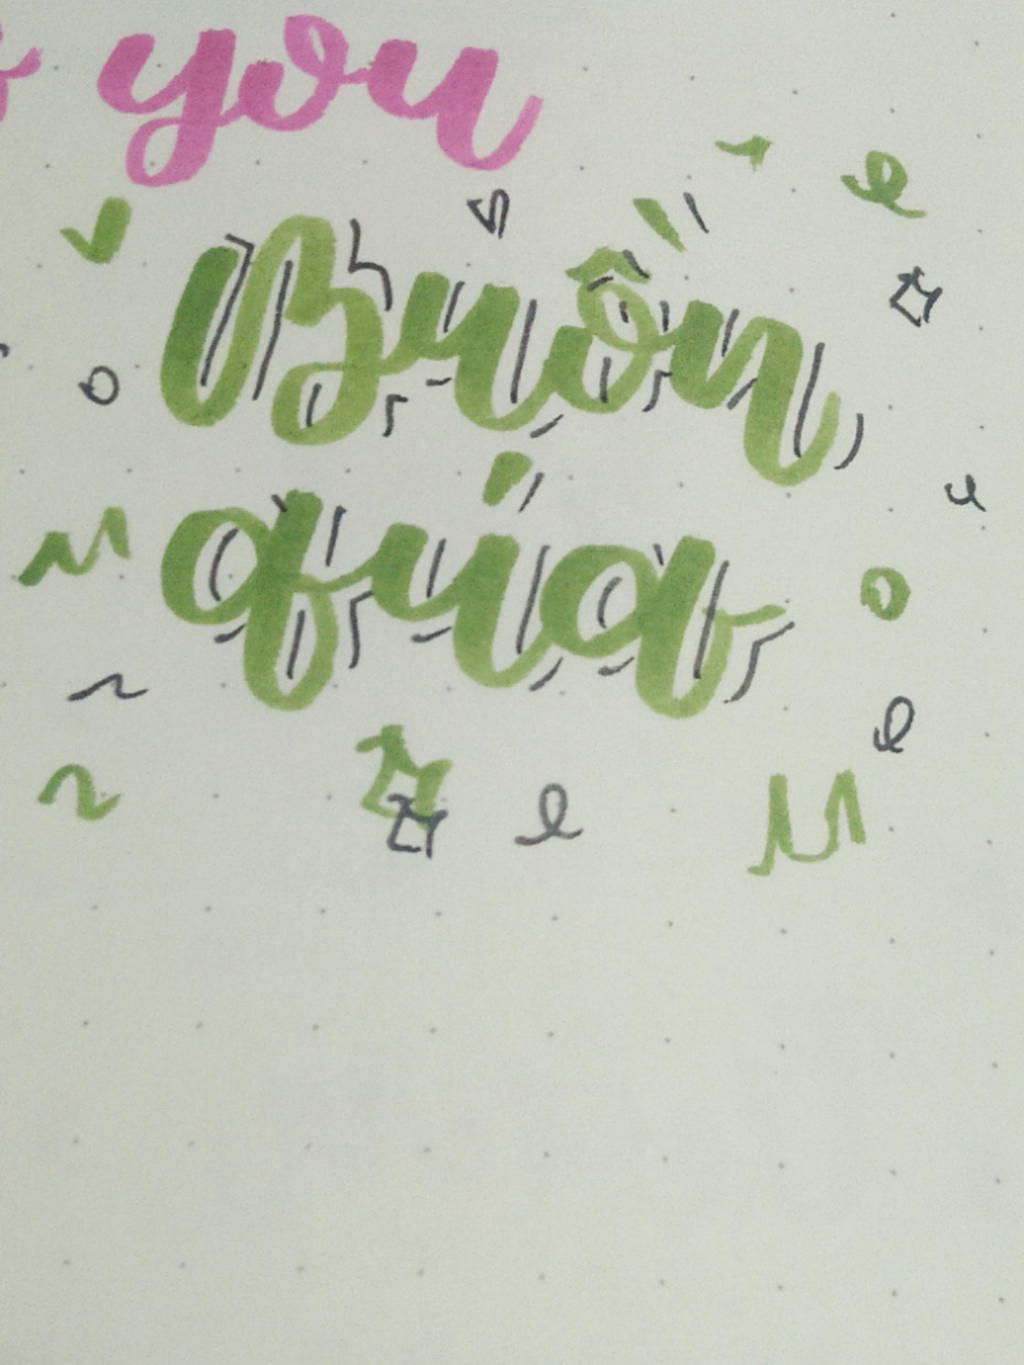 you
Buồn
qúa